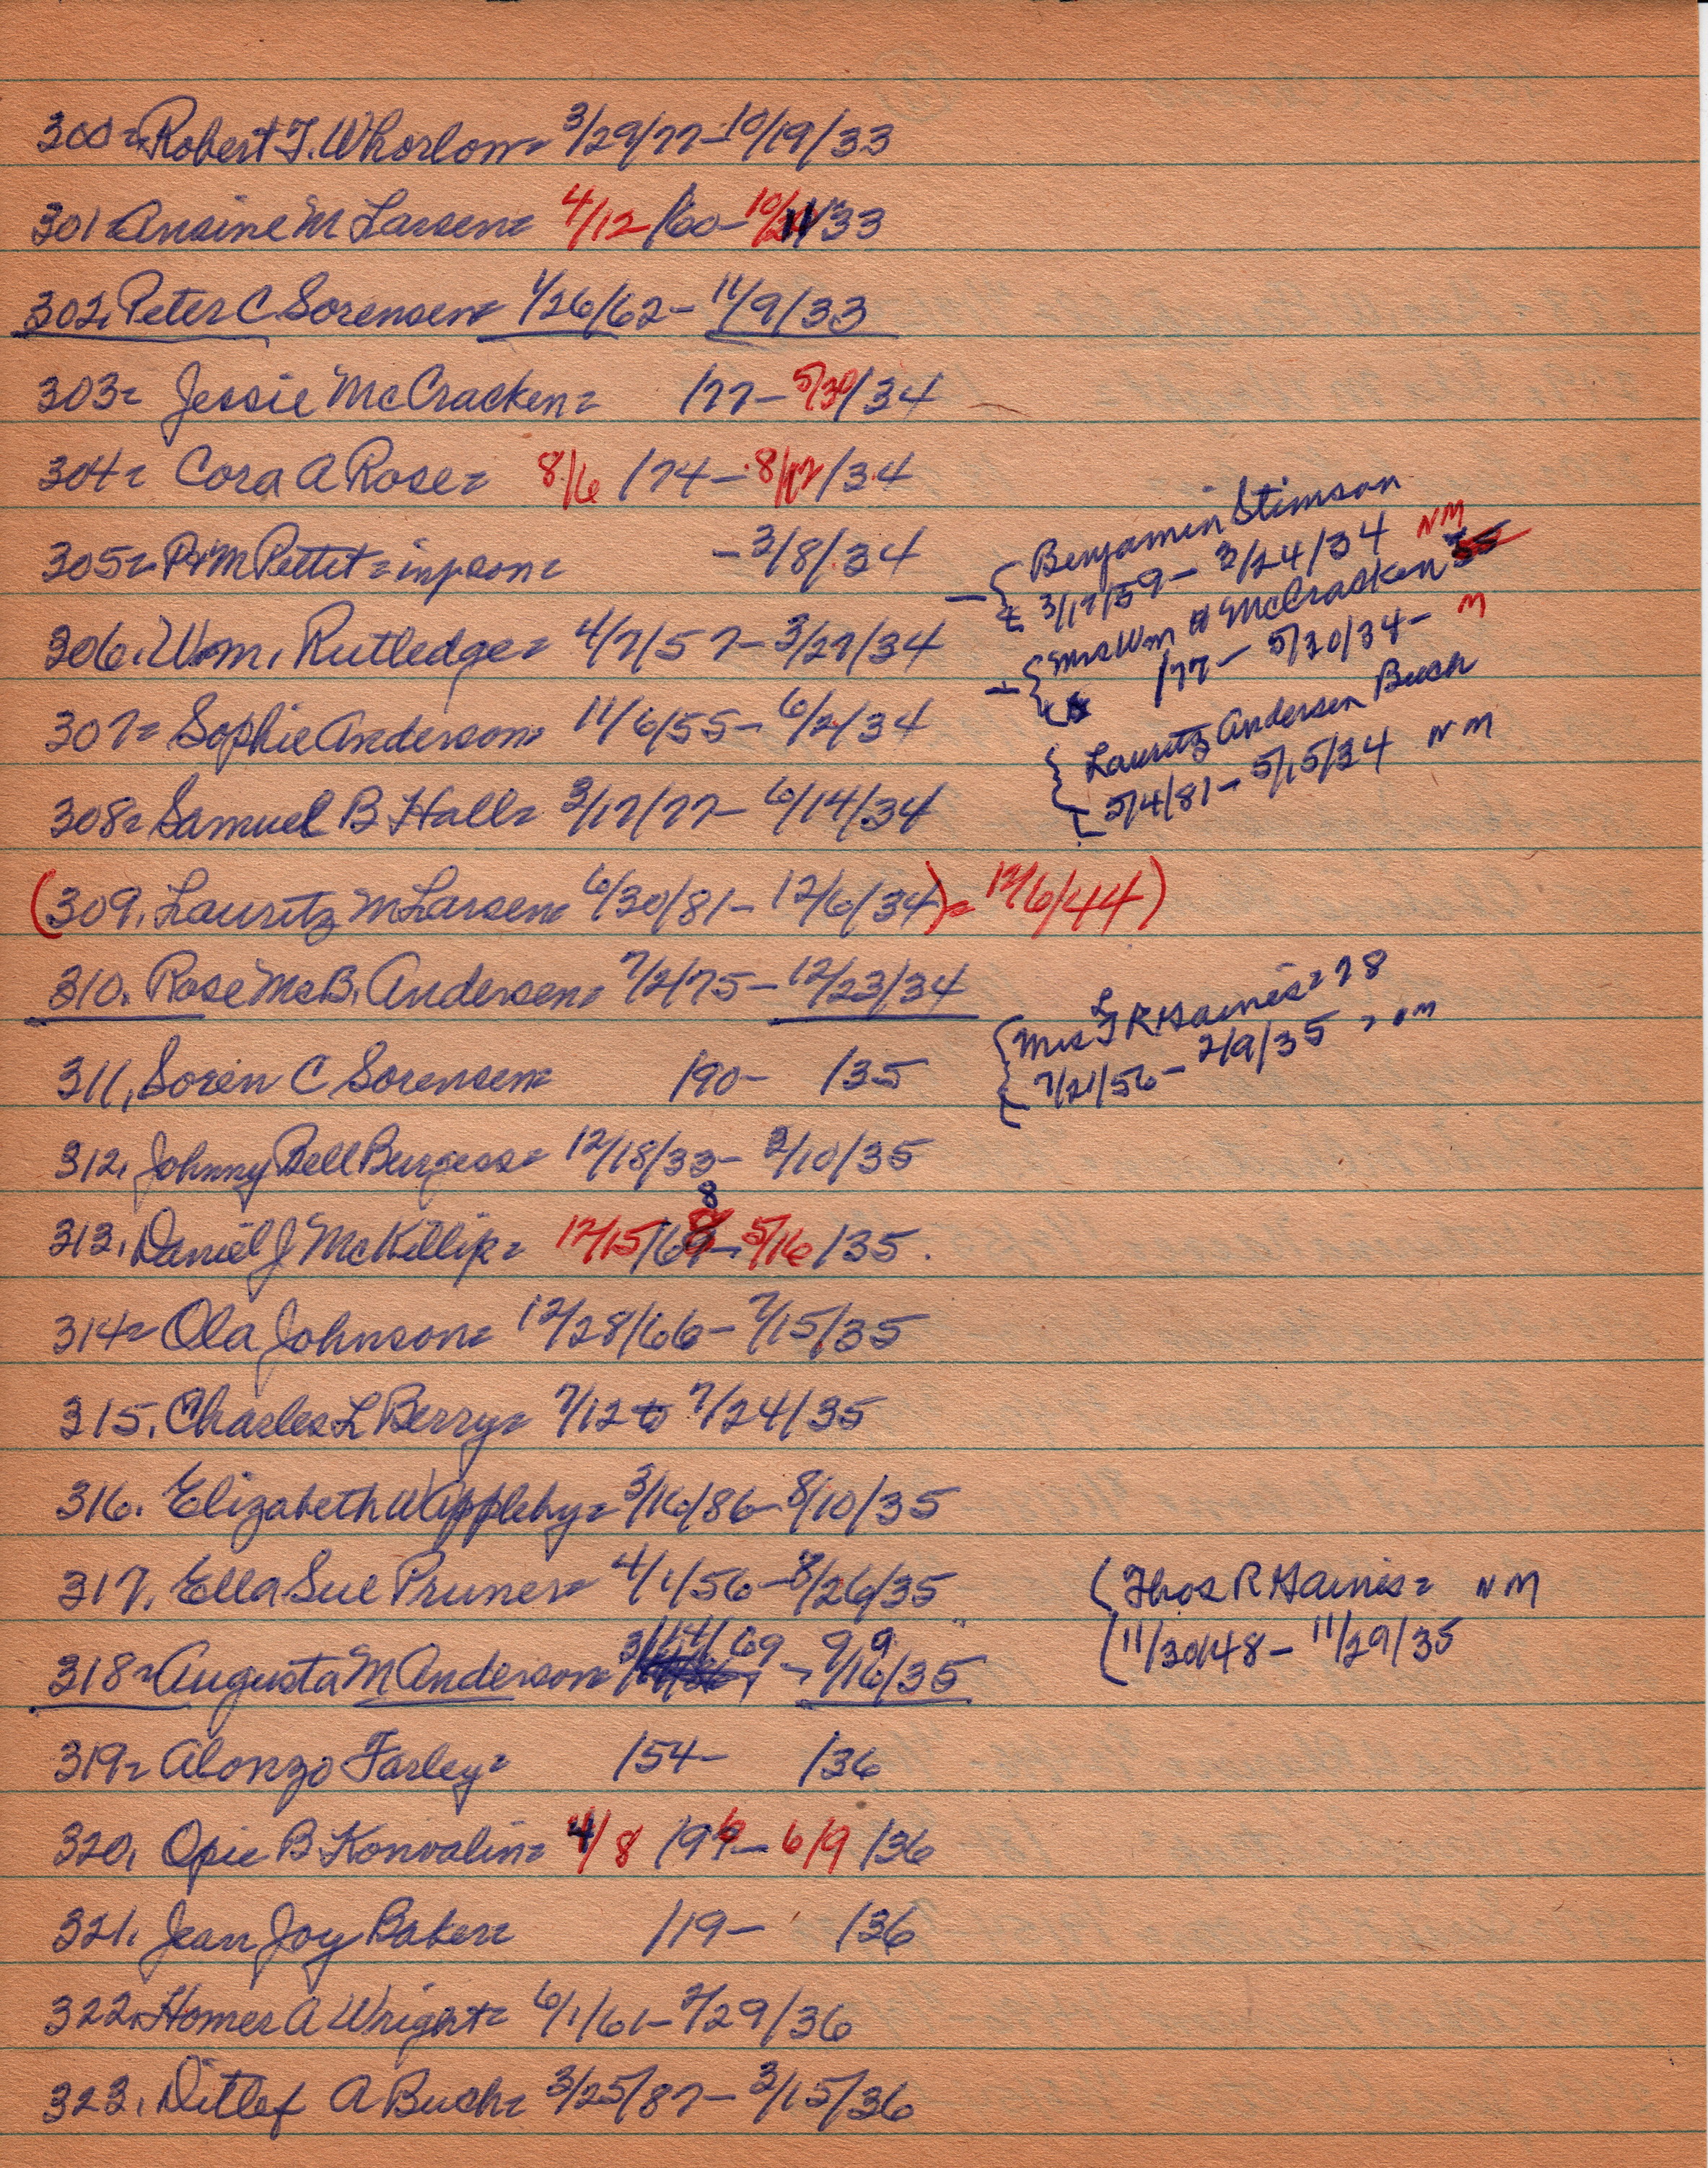 300= Robert T. Whorlow= 3/29/77-10/19/33
301= Ansine M Larsen= 4/12/60-10/ 11/33
302. Peter C. Sorensen= 1/26/62- 11/9/33
303= Jessie McCracken= /77- 5/30/34
304= Cora A Rose= 8/6 /74- 8/12/34
305= P M Pettit= =3/8/34
Benjamin Stimson
3/17/59- 3/24/34 NM
306. Wm. Rutledge= 4/7/57- 3/27/34
Mrs Wm H McCracken
/77- 5/30/34- M
307= Sophie Anderson= 11/6/55- 6/2/34
Lauritz Andersen Buch
5/4/81- 5/15/34 NM
308= Samuel B Hall= 3/17/77- 6/14/34
(309. Lauritz M Larsen= 6/30/81- 12/6/34)= 12/6/44)
310. Rose McB. Andersen= 7/2/75- 12/23/34
Mrs L R Haines= 78
7/21/56- 2/9/35 = NM
311, Soren C Sorensen= /90- /35
312, Johnny Bell Burgess= 12/18/33- 2/10/35
313, Daniel J McKillip= 12/15/68- 5/16/35.
314= Ola Johnson= 12/28/66- 7/15/35
315. Charles L Berry= 7/12 to 7/24/35
316. Elizabeth W Appleby= 3/16/86- 8/10/35
317. Ella Sue Pruner= 4/1/56- 8/26/35
Thos R Haines= NM
11/30/48- 11/29/35
318= Augusta M Anderson= 69 - 9/19/35
319= Alonzo Farley= /54- /36
320, Opie B Konvalin= 4/8 /96- 6/9 /36
321. Jean Joy Baker= /19- /36
322. Homer A Wright= 6/1/61- 2/29/36
323. Ditlef A Buch= 3/25/87- 3/15/36